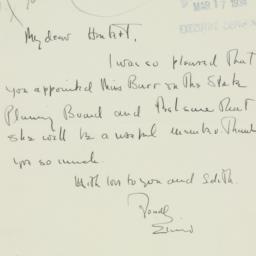 MAR 17 1934
EXECUTIVE
My dear
I was so pleased that
you appointed Miss Burr on the State
Planning Board and feel sure that
she will be a useful member. Thank
you so much.
With love to you and Edith.